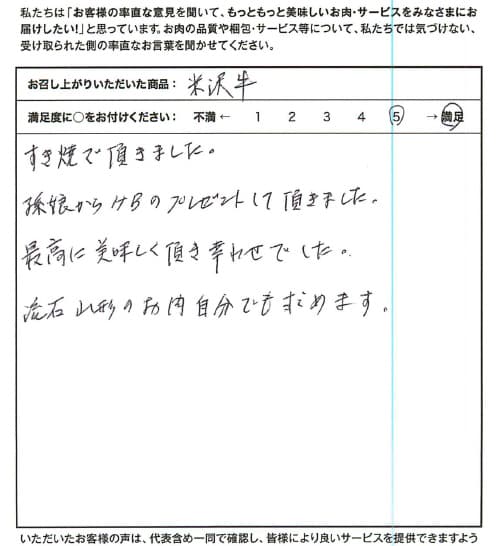 私たちは「お客様の率直な意見を聞いて、もっともっと美味しいお肉・サービスをみなさまにお
届けしたい!」と思っています。お肉の品質や梱包・サービス等について、私たちでは気づけない、
受け取られた側の率直なお言葉を聞かせてください。
お召し上がりいただいた商品: 米沢牛
満足度に○をお付けください: 不満 ← 1 2 3 4 5 → 満足
すき焼で頂きました。
孫娘からHBのプレゼントして頂きました。
最高に美味しく頂き幸わせでした。
流石山形のお肉自分でも求めます。
いただいたお客様の声は、代表含め一同で確認し、皆様により良いサービスを提供できますよう